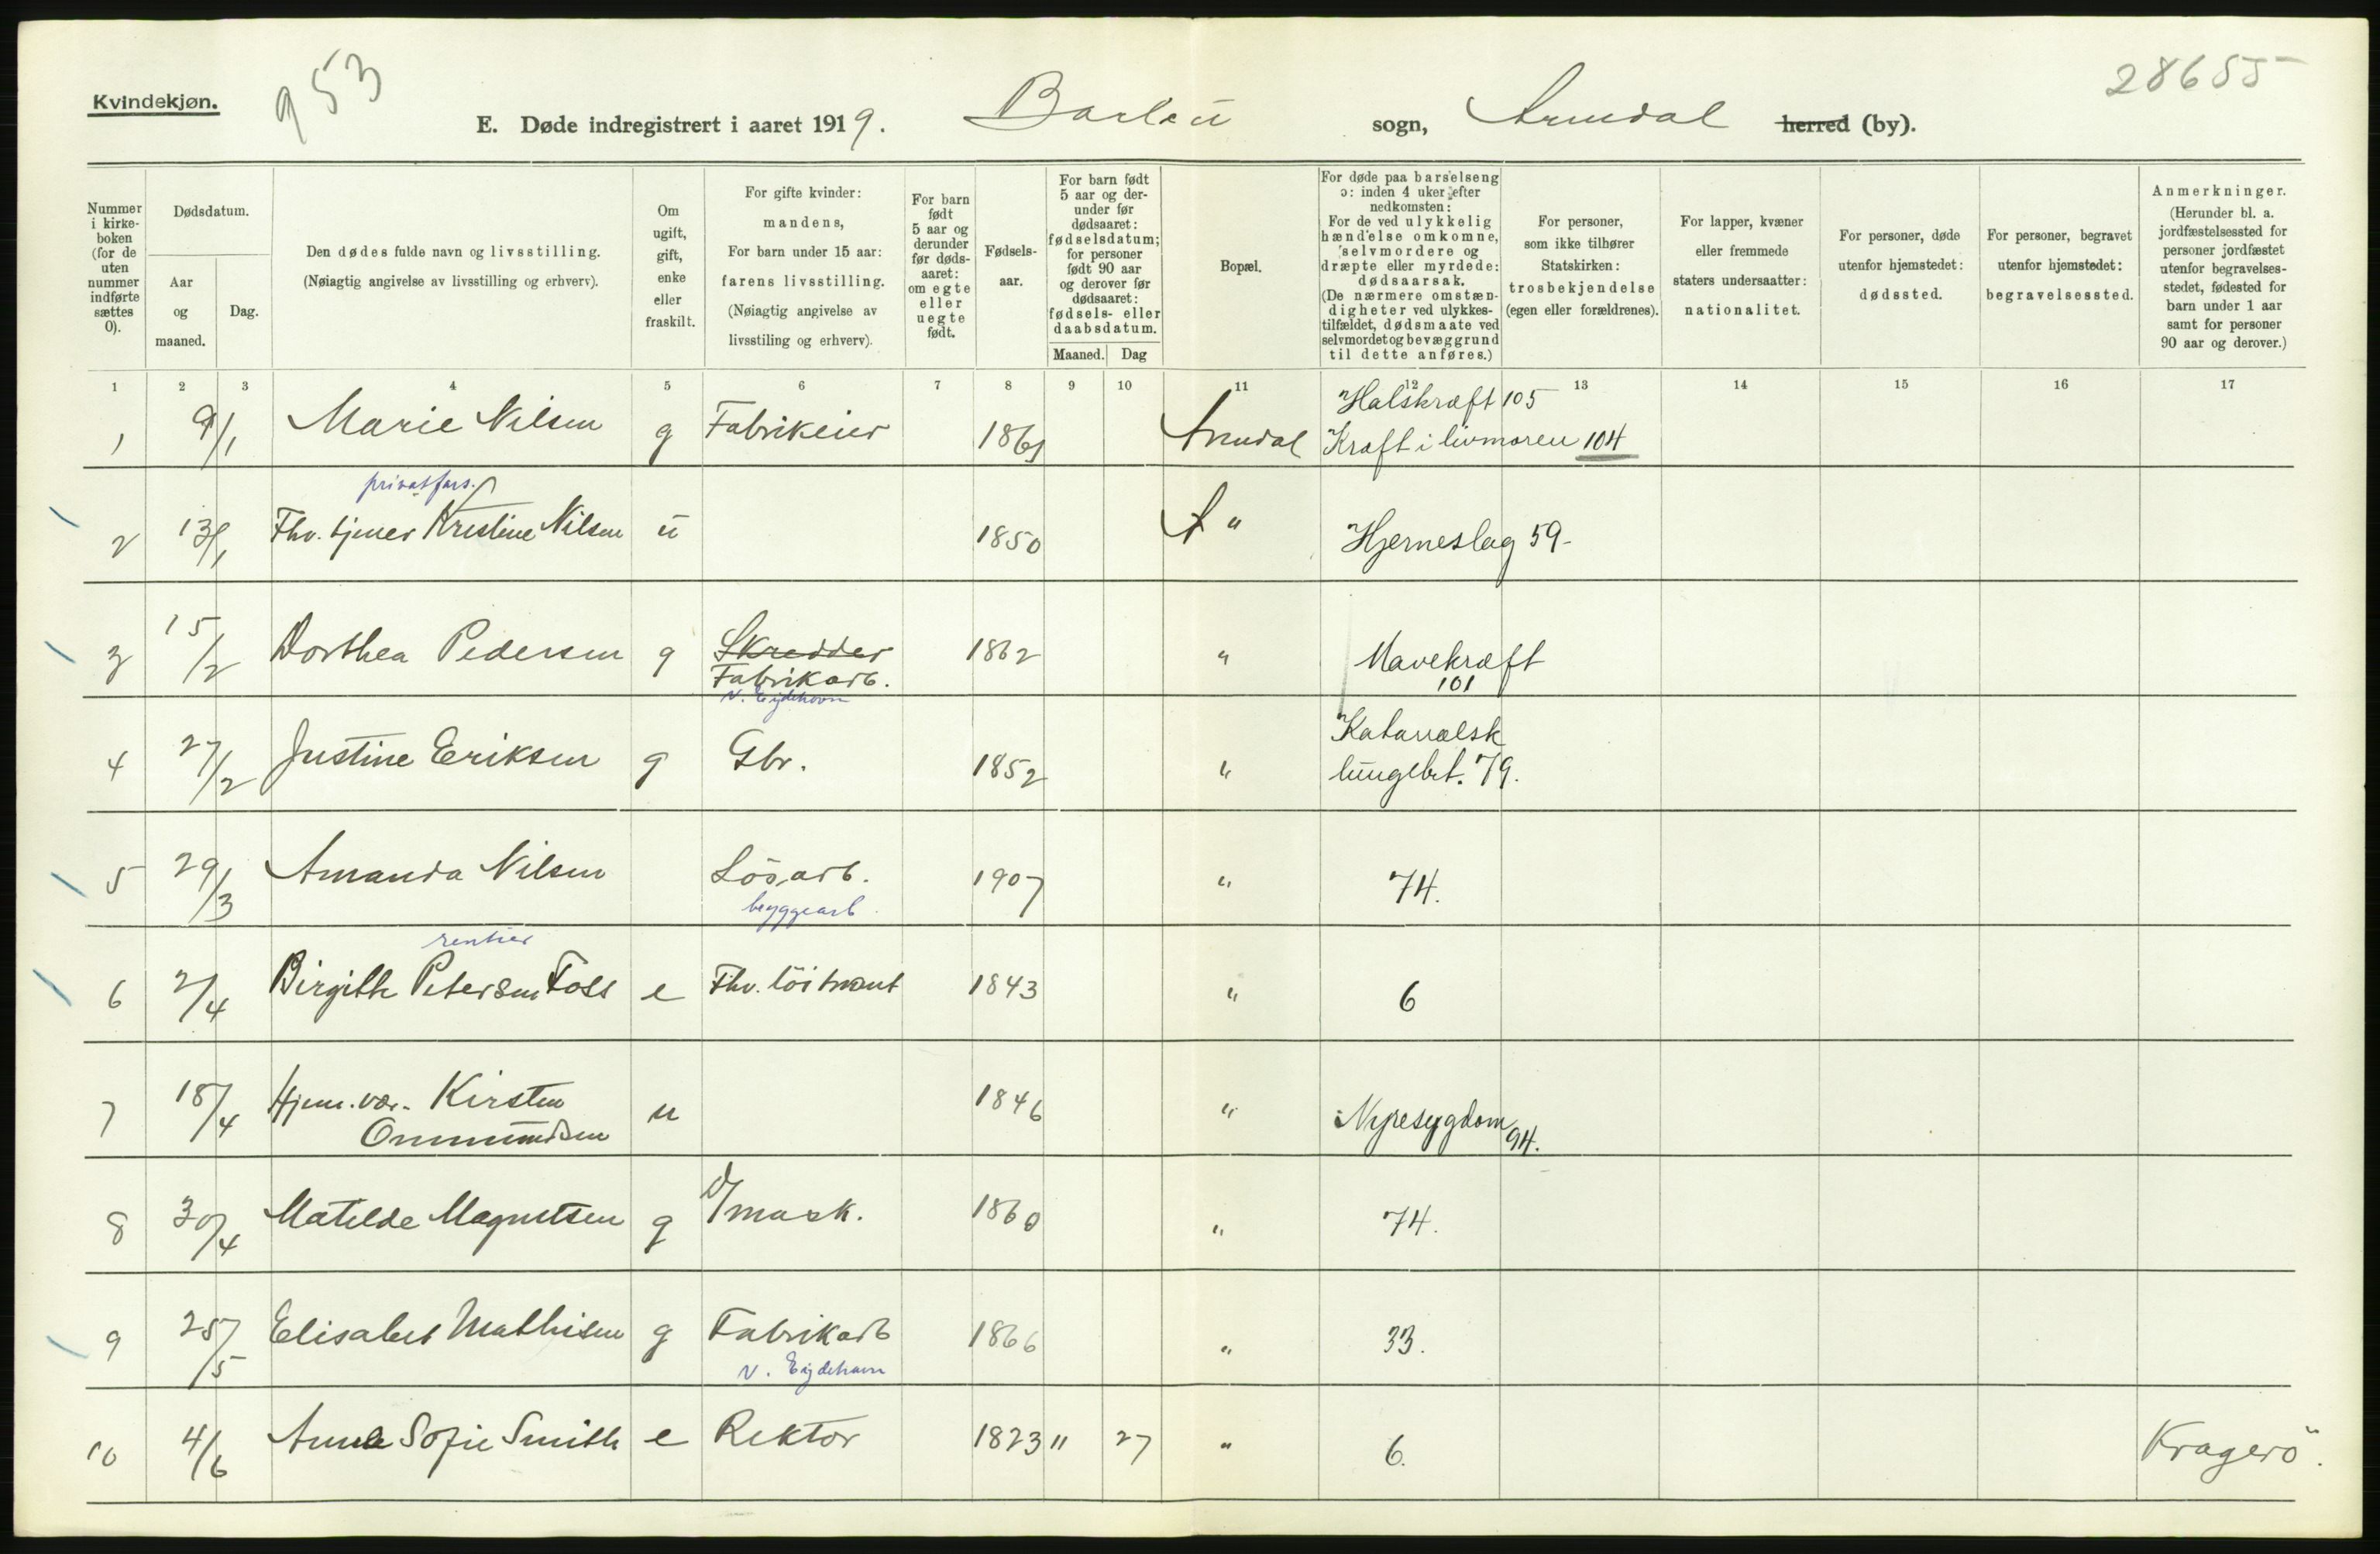 Kvindekjøn.
953
28655
E. Døde indregistrert i aaret 1919. Barbu sogn, Arendal herred (by).
Nummer i kirkeboken (for de uten nummer indførte sættes 0).
Dødsdatum.
Aar og maaned.
Dag.
Den dødes fulde navn og livsstilling.
(Nøiagtig angivelse av livsstilling og erhverv).
Om ugift, gift, enke eller fraskilt.
For gifte kvinder: mandens,
For barn under 15 aar: farens livsstilling.
(Nøiagtig angivelse av livsstiling og erhverv).
For barn født 5 aar og derunder før dødsaaret: om egte eller uegte født.
Fødselsaar.
For barn født 5 aar og derunder før dødsaaret: fødselsdatum; for personer født 90 aar og derover før dødsaaret: fødsels- eller daabsdatum.
Maaned. Dag
Bopæl.
For døde paa barselseng ɔ: inden 4 uker efter nedkomsten:
For de ved ulykkelig hændelse omkomne, selvmordere og dræpte eller myrdede: dødsaarsak.
(De nærmere omstændigheter ved ulykkestilfældet, dødsmaate ved selvmordet og bevæggrund til dette anføres.)
For personer, som ikke tilhører Statskirken: trosbekjendelse (egen eller forældrenes).
For lapper, kvæner eller fremmede staters undersaatter: nationalitet.
For personer, døde utenfor hjemstedet: dødssted.
For personer, begravet utenfor hjemstedet: begravelsessted.
Anmerkninger.
(Herunder bl. a. jordfæstelsessted for personer jordfæstet utenfor begravelsesstedet, fødested for barn under 1 aar samt for personer 90 aar og derover.)
1 2 3 4 5 6 7 8 9 10 11 12 13 14 15 16 17
Halskræft 105
1 9/1 Marie Nilsen g Fabrikeier 1861 Arendal Kræft i livmoren 104
privatfors.
2 13/1 Fhv. tjener Kristine Nilsen u 1850 A " Hjerneslag 59-
3 15/2 Dorthea Pedersen g Skredder 1862 " Mavekræft
Fabrikarb. 101
v. Eydehavn
Katarralsk
4 27/2 Justine Eriksen g Gbr. 1852 " lungebet. 79.
5 29/3 Amanda Nilsen Løsarb. 1907 " 74.
byggearb.
rentier
6 2/4 Birgitte Petersen Foss e Fhv. löitnant 1843 " 6
7 18/4 Hjem. vær. Kirsten u 1846 " Nyresygdom 94.
Ommundsen
8 30/4 Matilde Magnetsen g d/mask. 1860 " 74.
9 25/5 Elisabet Mathisen g Fabrikarb 1866 " 33.
v. Eydehavn
10 4/6 Anne Sofie Smith e Rektor 1823 11 27 " 6. Kragerö.